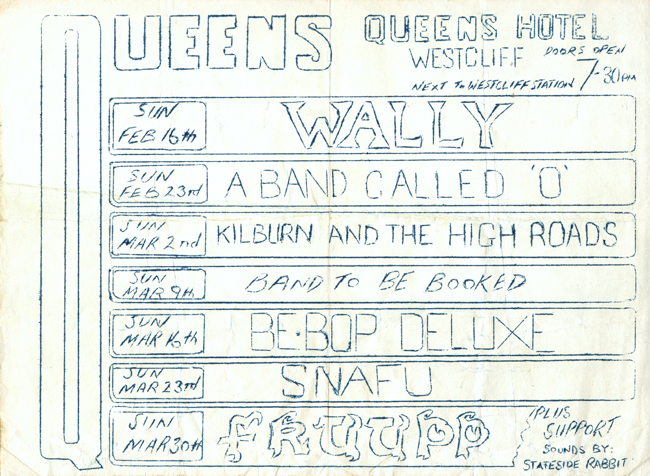 QUEENS
QUEENS HOTEL
WESTCLIFF DOORS OPEN
NEXT TO WESTCLIFF STATION 7-30PM
SUN
FEB 16th
WALLY
SUN
FEB 23rd
A BAND CALLED 'O'
SUN
MAR 2nd
KILBURN AND THE HIGH ROADS
SUN
MAR 9th
BAND TO BE BOOKED
SUN
MAR 16th
BE·BOP DELUXE
SUN
MAR 23rd
SNAFU
SUN
MAR 30th
FRUUPP
PLUS
SUPPORT
SOUNDS BY:
STATESIDE RABBIT